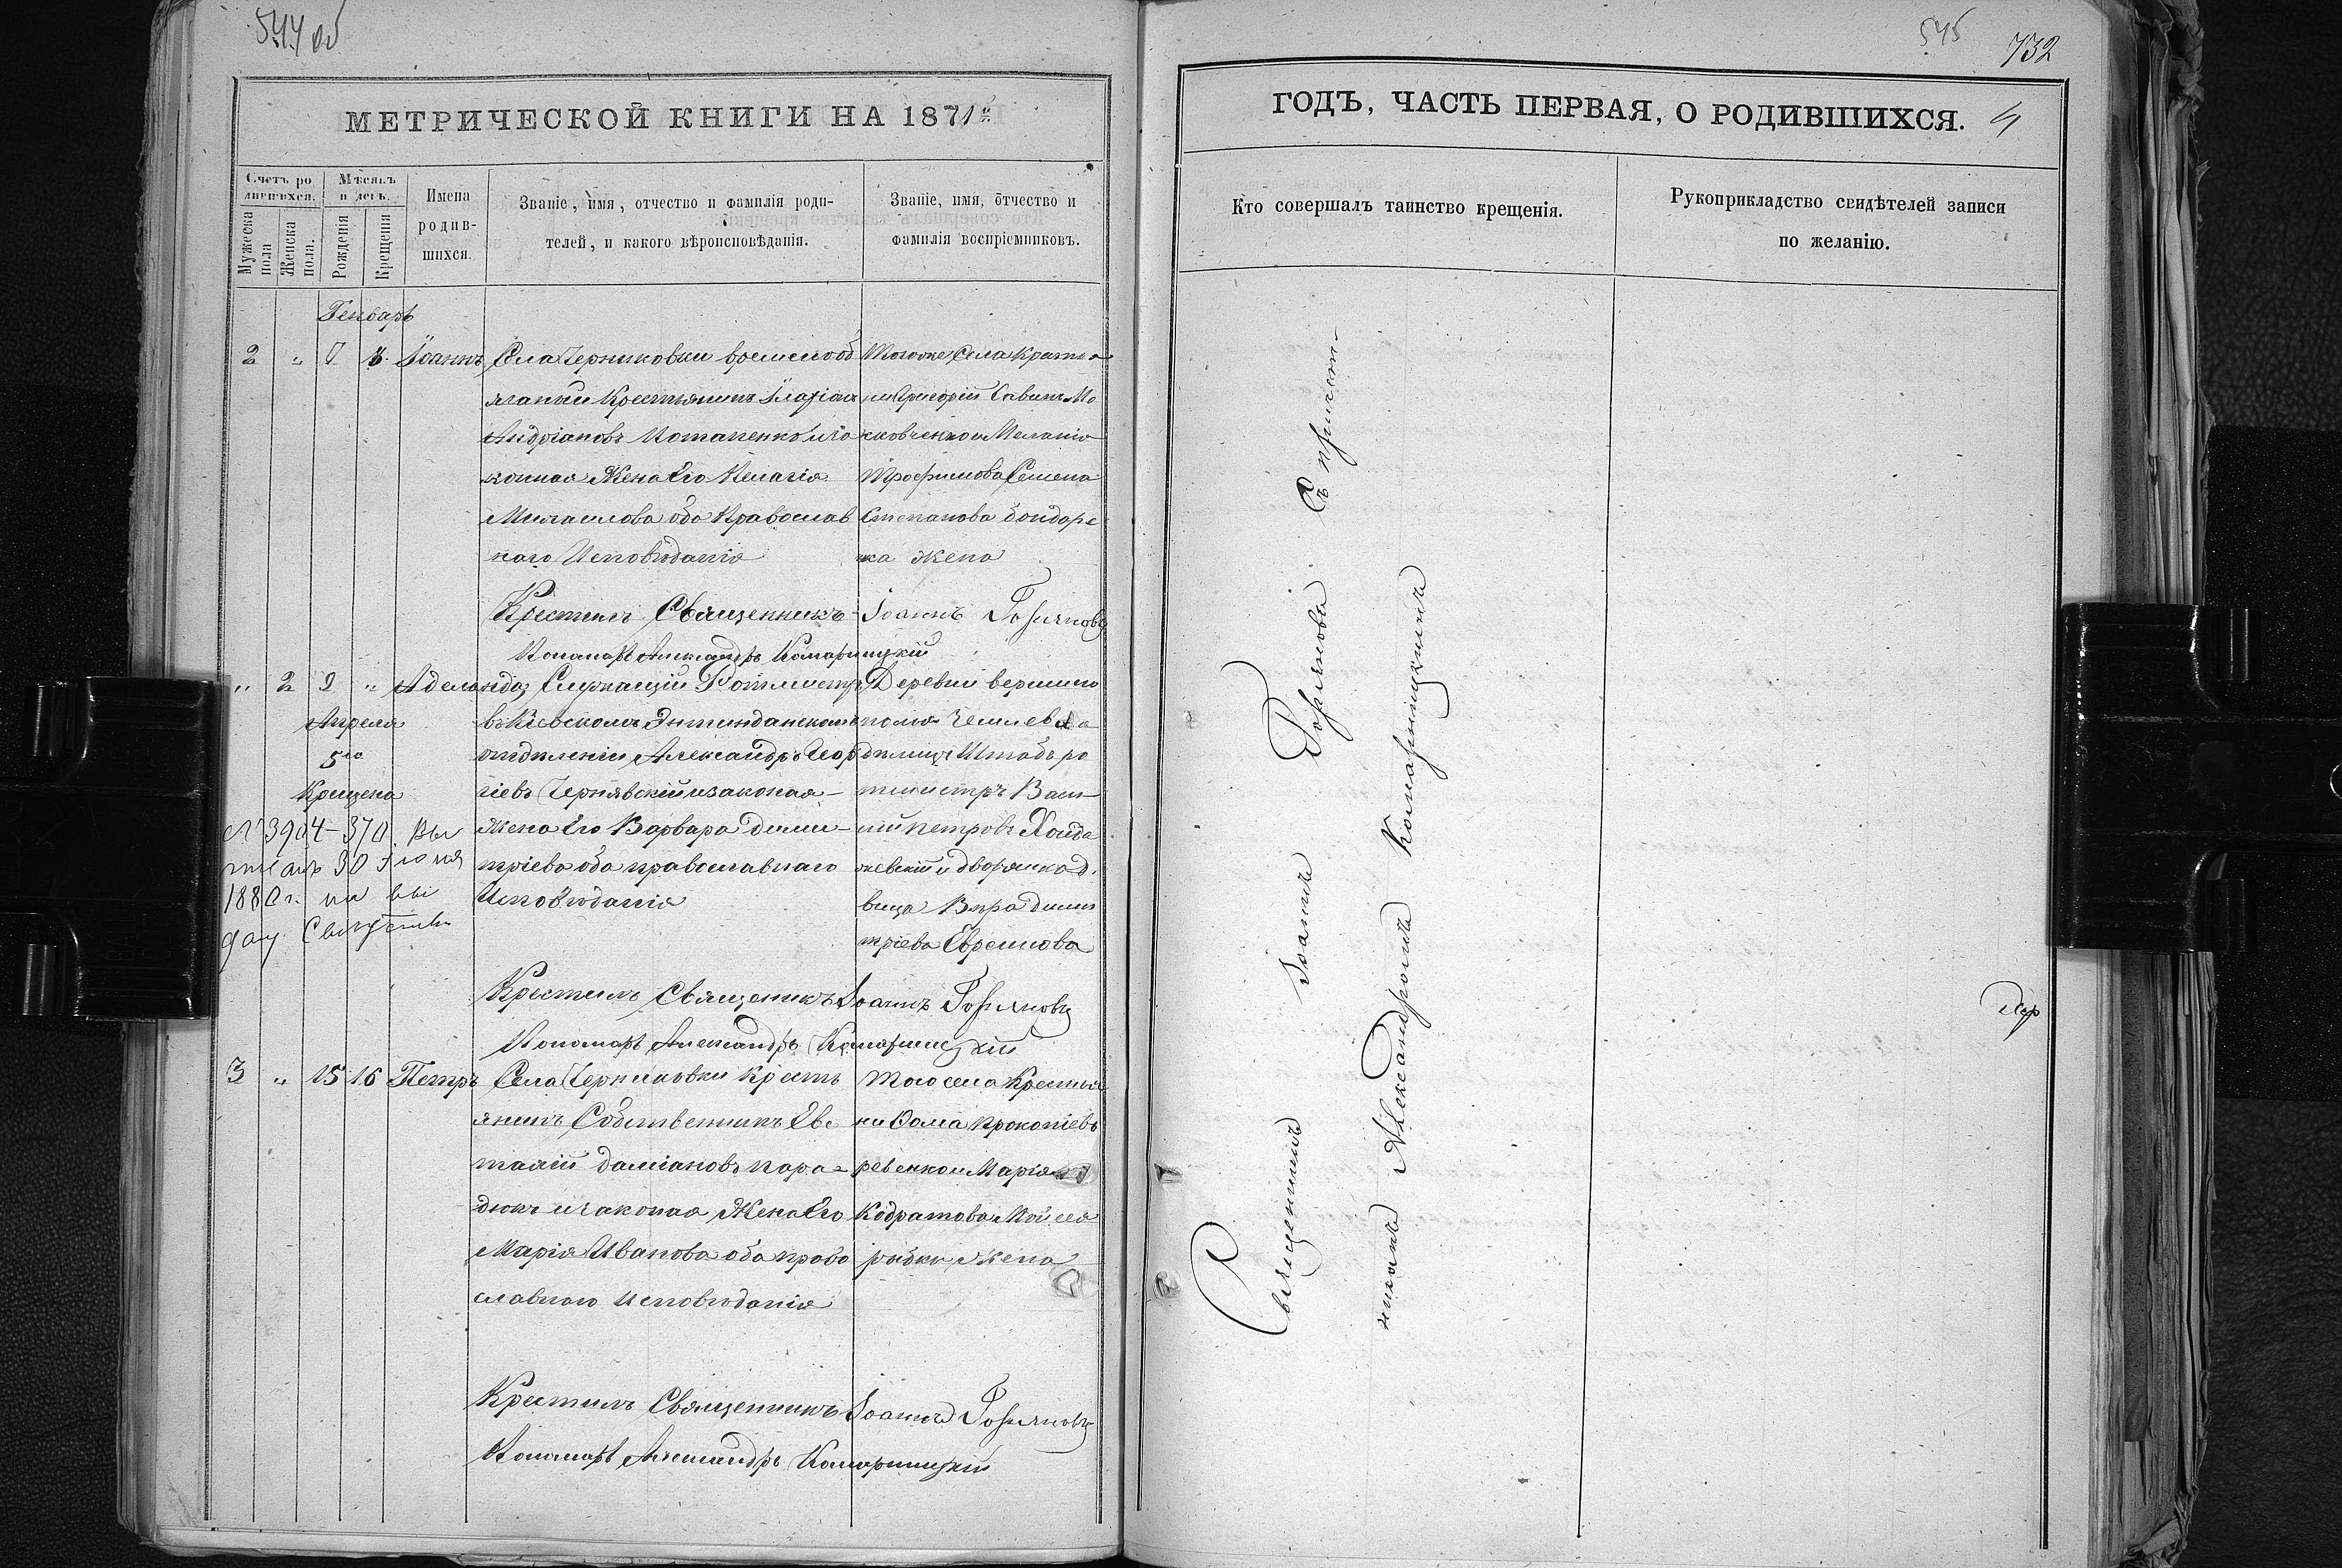 544 об
МЕТРИЧЕСКОЙ КНИГИ НА 1871й
Счетъ ро
дившихся.
Мѣсяцъ
и день.
Мужеска
пола
Женска
пола.
Рожденія
Крещенія
Имена
родив-
шихся.
Званіе, имя, отчество и фамилія роди-
телей, и какого вѣроисповѣданія.
Званіе, имя, отчество и
фамилія воспріемниковъ.
Генварь
2 " Іоаннъ
Села Черниковки временооб
язаный Крестьянинъ
Андріановъ Потапенко иза
конная Жена Его Пелагія
Михаилова оба Православ
наго Исповѣданія
Тогоже Села Крестья
не Григорій Савинъ Мо
сковченко и Меланія
Трофимова Семена
Степанова бондаре
нка жена
Крестилъ Священникъ Іоаннъ
Пономарь Александръ Комарницкій
" 2 2 "
Апреля
5го
Крещена
№ 3904-370. Вы
30 Іюня
1880 г. на вы
дачу
Служащій Ротмистръ
въ Кіевскомъ Интенданскомъ
отдѣленіи Александръ Геор
гіевъ Чернявскій изаконая
жена Его Варвара дими
тріева оба православнаго
Исповѣданія
Деревни
Штабъ ро
тмистръ Васи
лій Петровъ
и дворянка д.
вица Вѣра дими
тріева Евреинова
Крестилъ Священикъ Іоаннъ
Пономарь Александръ Комарницкій
3 " 15 16 Петръ
Села Черниковки Крестъ
янинъ Собственникъ Евс
тафій даміановъ пара=
дюкъ изаконая Жена Его
Марія Иванова оба право
славнаго Исповѣданія
Того села Крестья
не Фома Прокопіевъ
и Марія
Кодратова Мойсея
рыбки Жена
Крестилъ Священникъ Іоаннъ
Пономарь Александръ Комарницкій
545
732
ГОДЪ, ЧАСТЬ ПЕРВАЯ, О РОДИВШИХСЯ. 4
Кто совершалъ таинство крещенія.
Рукоприкладство свидѣтелей записи
по желанію.
Священникъ Іоаннъ Съ причет-
никомъ Александромъ Комарницкимъ